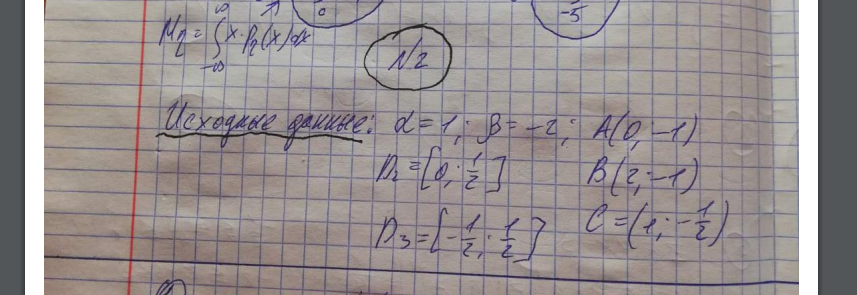 Mη = ∫ x · Pη(x) dx
-∞
0
-5
N2
Исходные данные: α = 1; β = -2; A(0; -1)
D₂ = [0; 1/2] B(2; -1)
D₃ = [-1/2; 1/2] C = (1; -1/2)